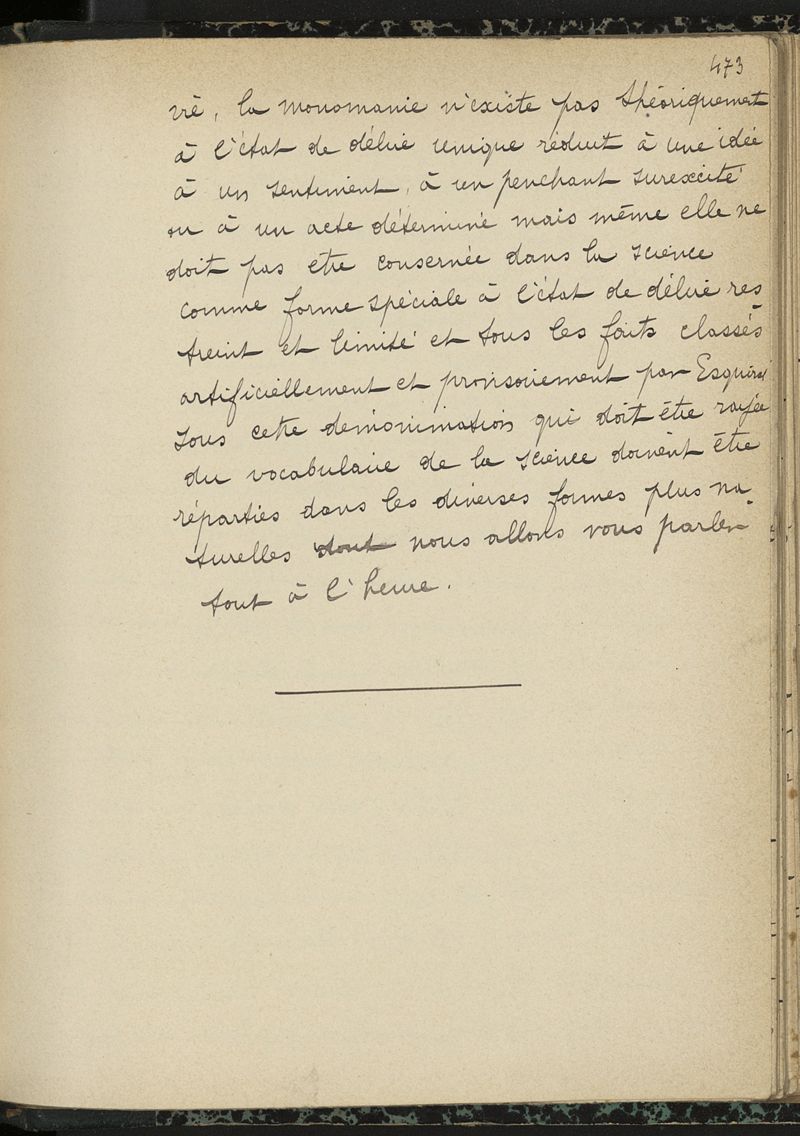 473
vré, la monomanie n'existe pas théoriquement
à l'état de délire unique réduit à une idée
à un sentiment, à un penchant surexcité
ou à un acte déterminé mais même elle ne
doit pas etre conservée dans la science
comme forme spéciale à l'état de délire res
treint et limité et tous les faits classés
artificiellement et provisoirement par Esquirol
sous cette dénomination qui doit être rayée
du vocabulaire de la science doivent être
réparties dans les diverses formes plus na
turelles dont nous allons vous parler
tout à l'heure.